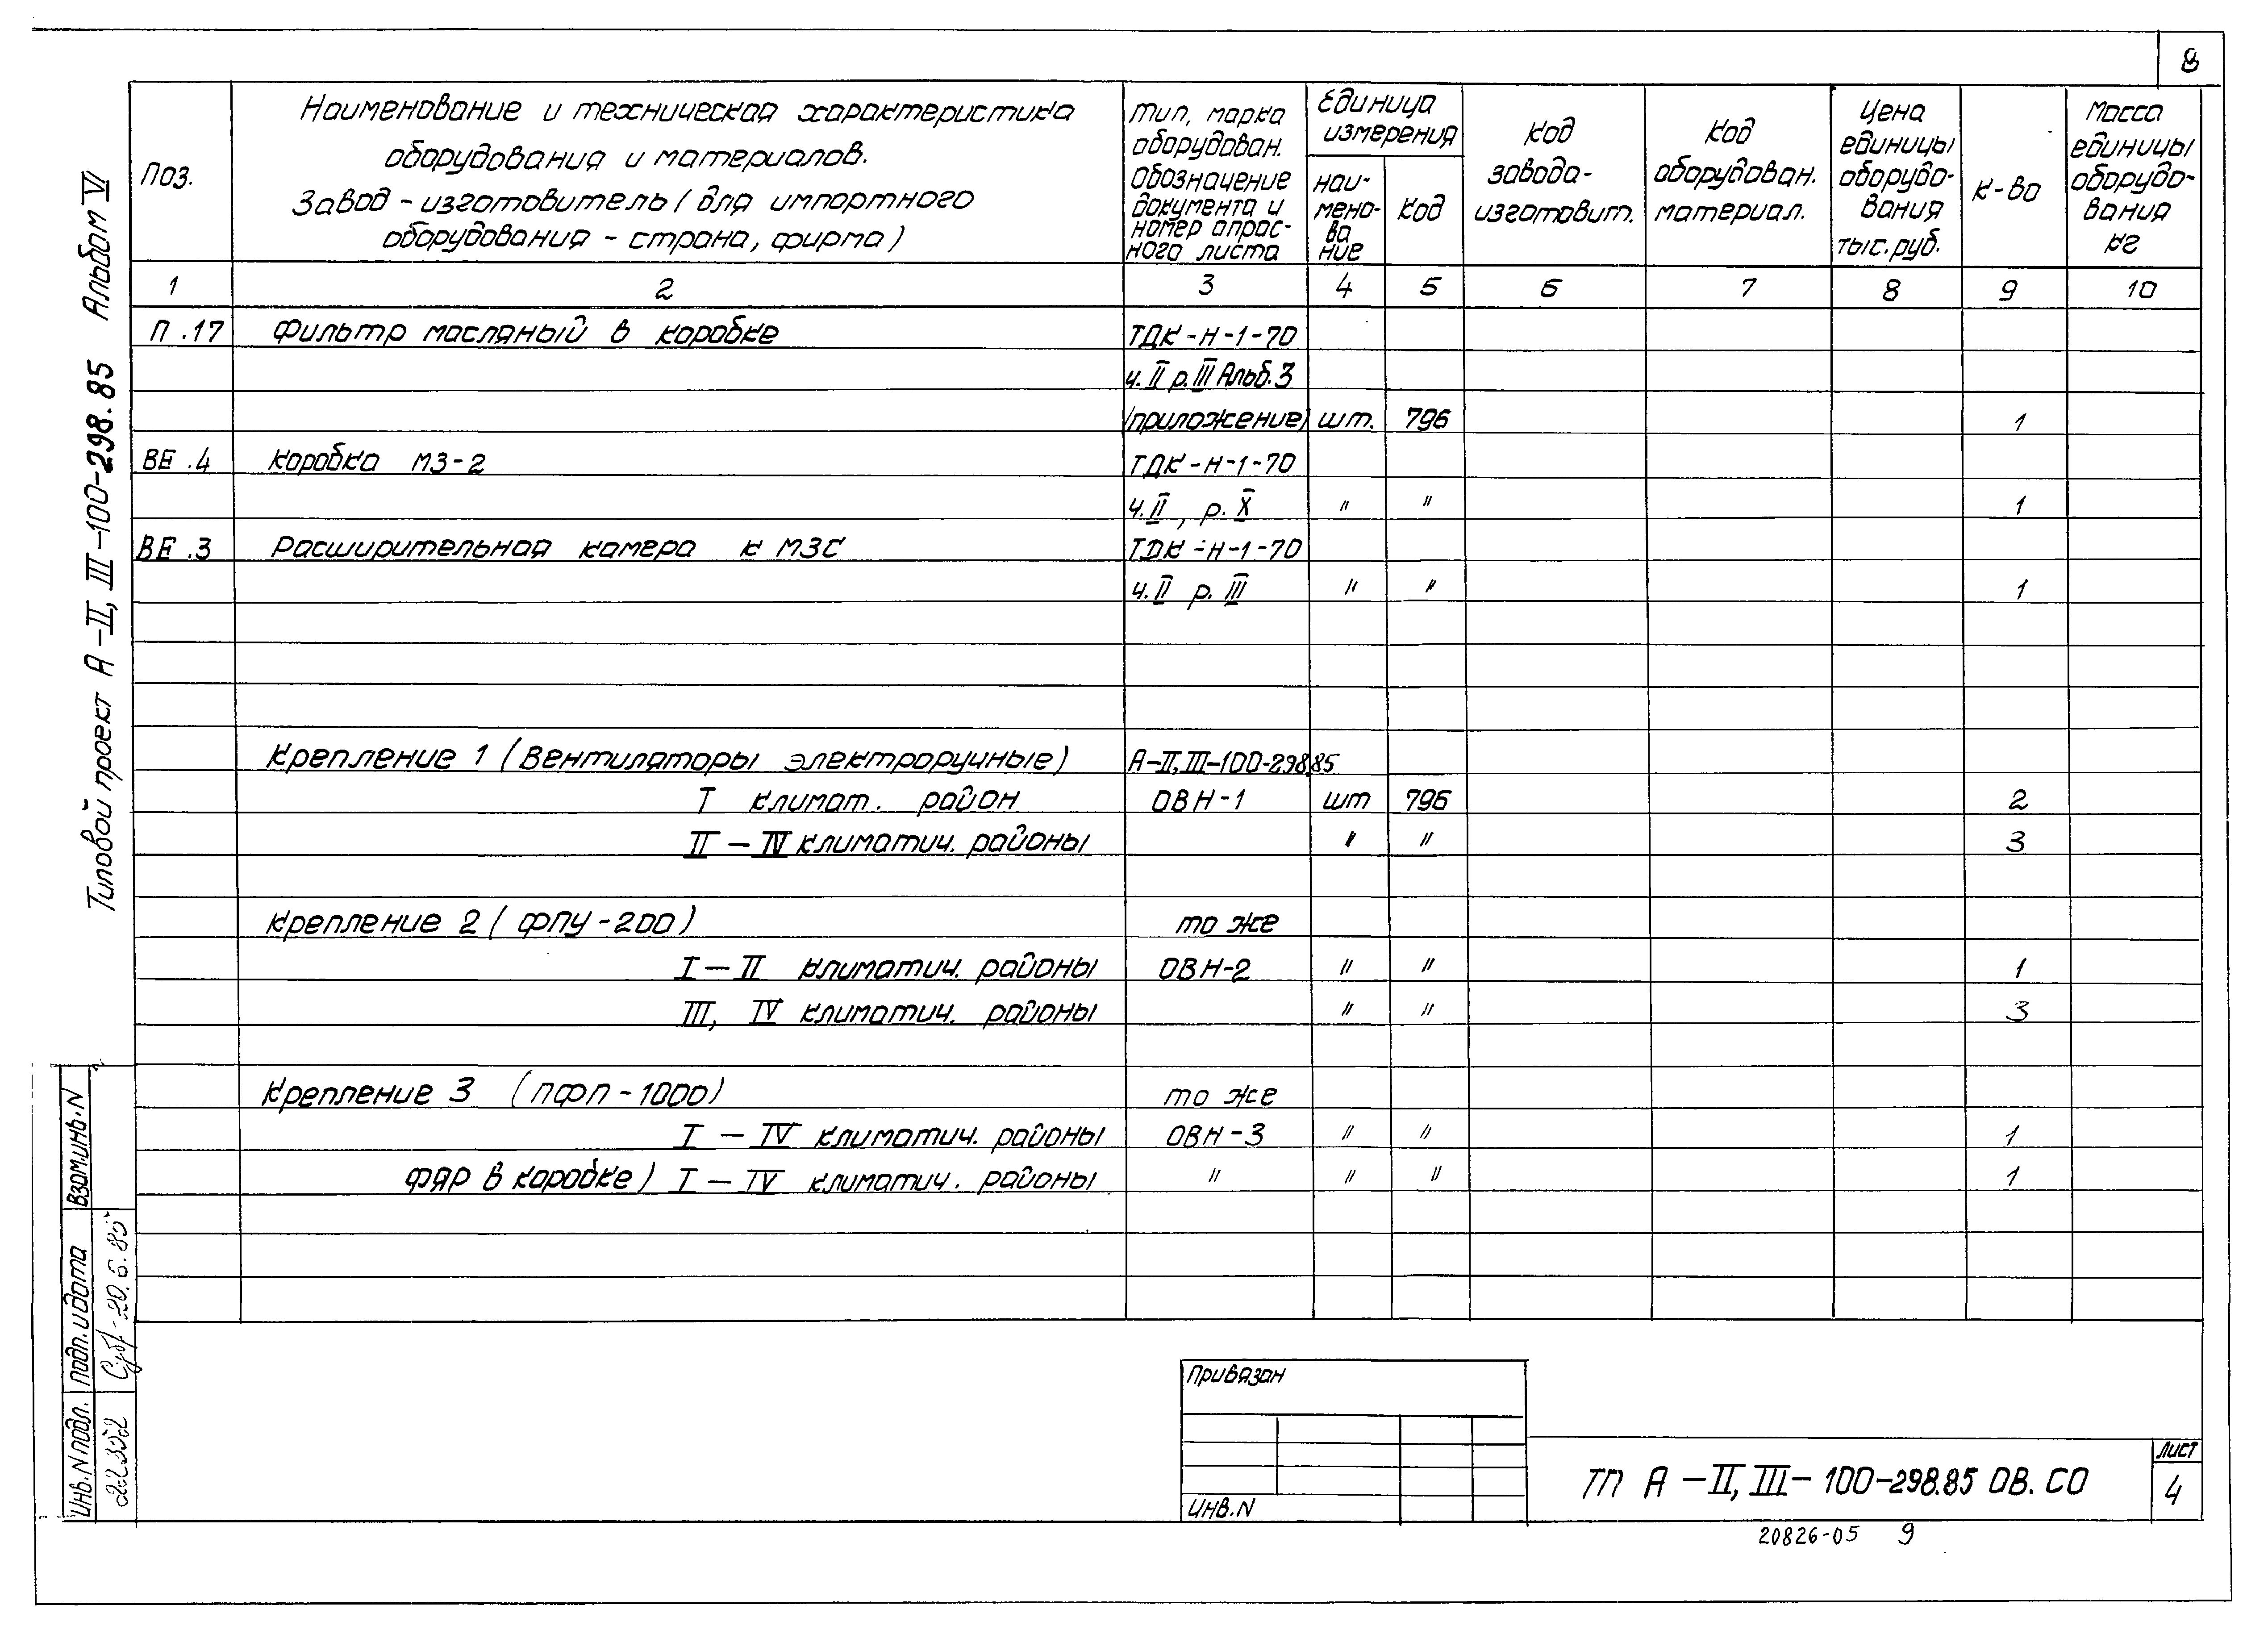 8
Типовой проект А-II, III-100-298.85 Альбом VI
Поз.
Наименование и техническая характеристика
оборудования и материалов.
Завод-изготовитель (для импортного
оборудования - страна, фирма)
Тип, марка
оборудован.
Обозначение
документа и
номер опрас-
ного листа
Единица
измерения
наи-
мено-
ва
ние
Код
Код
завода-
изготовит.
Код
оборудован.
материал.
Цена
единицы
оборудо-
вания
тыс.руб.
К-во
Масса
единицы
оборудо-
вания
кг
1 2 3 4 5 6 7 8 9 10
П.17 Фильтр масляный в коробке ТДК-Н-1-70
ч. II р. III Альб.3
(приложение) шт. 796 1
ВЕ.4 Коробка МЗ-2 ТДК-Н-1-70
ч. II, р. X " " 1
ВЕ.3 Расширительная камера к МЗС ТДК-Н-1-70
ч. II р. III " " 1
Крепление 1 (Вентиляторы электроручные) А-II, III-100-298.85
I климат. район ОВН-1 шт 796 2
II-IV климатич. районы " " 3
Крепление 2 (ФПУ-200) то же
I-II климатич. районы ОВН-2 " " 1
III, IV климатич. районы " " 3
Крепление 3 (ПФП-1000) то же
I-IV климатич. районы ОВН-3 " " 1
ФЯР в коробке) I-IV климатич. районы " " " 1
Взам.инв.N
Подп. и дата
20.6.85
Инв.N подл.
Привязан
Инв.N
ТП А-II, III-100-298.85 ОВ.СО
Лист
4
20826-05 9